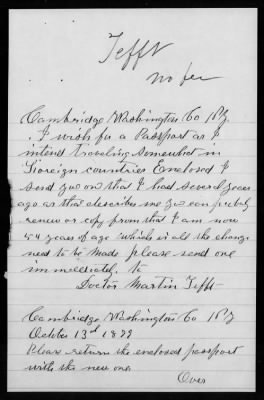 Tefft
no fee
Cambridge Washington Co NY
I wish for a Passport as I
intend traveling somewhat in
Foreign countries Enclosed I
send you one that I had several years
ago as that describes me you can probely
renew or copy from that I am now
54 years of age which is all the change
need to be made please send one
immediately to
Doctor Martin Tefft
Cambridge Washington Co NY
October 13d
Please return the enclosed passport
with the new one
Over